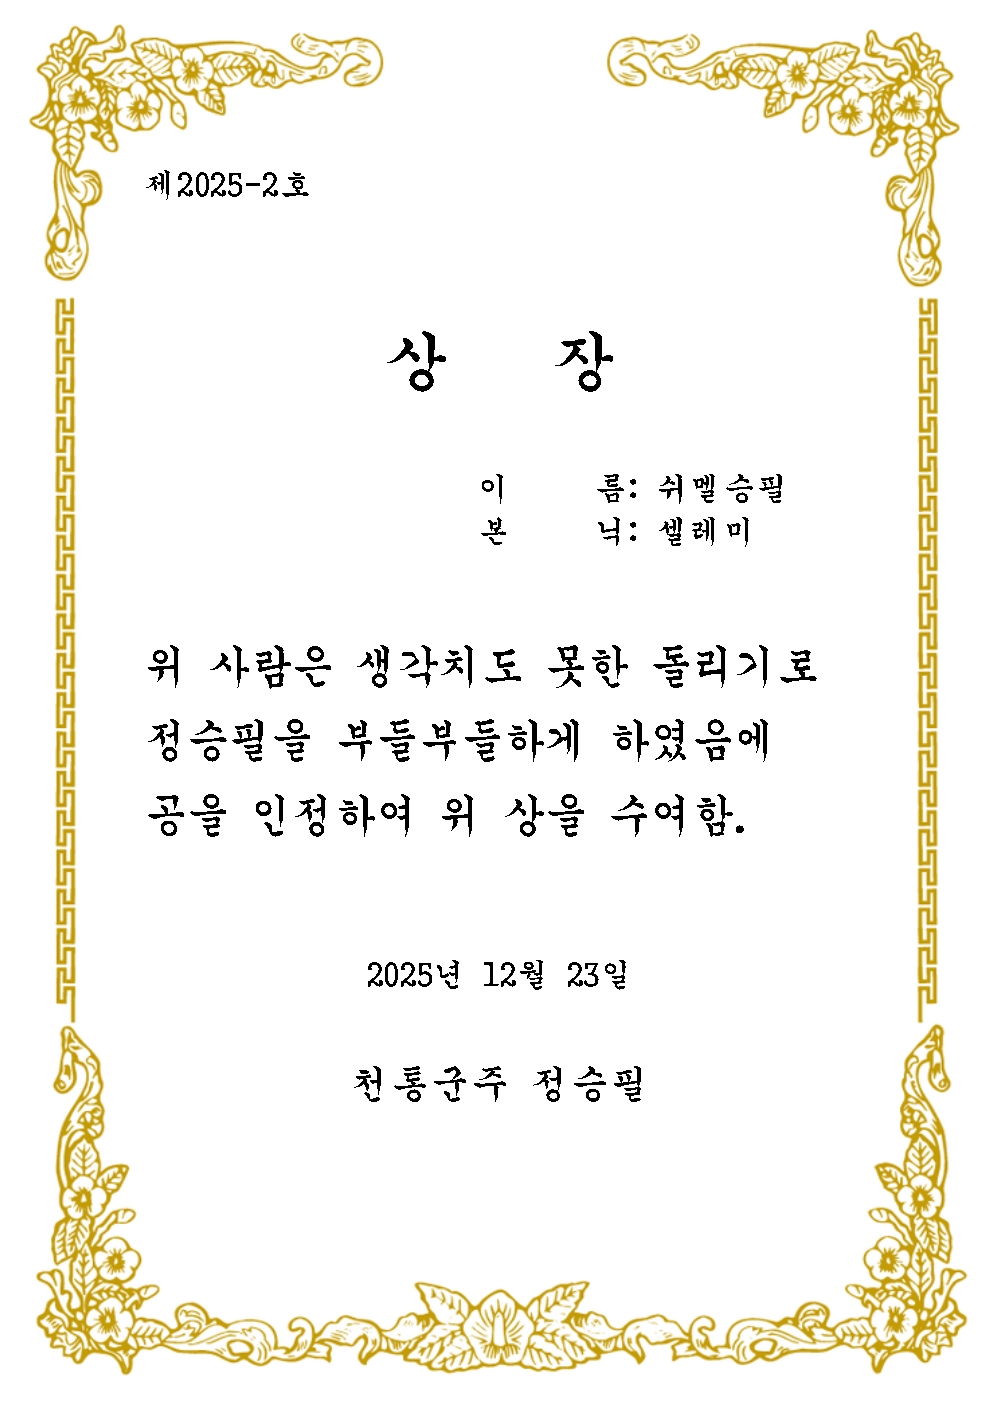 제2025-2호
상 장
이 름: 쉬멜승필
본 닉: 셀레미
위 사람은 생각치도 못한 돌리기로
정승필을 부들부들하게 하였음에
공을 인정하여 위 상을 수여함.
2025년 12월 23일
천통군주 정승필